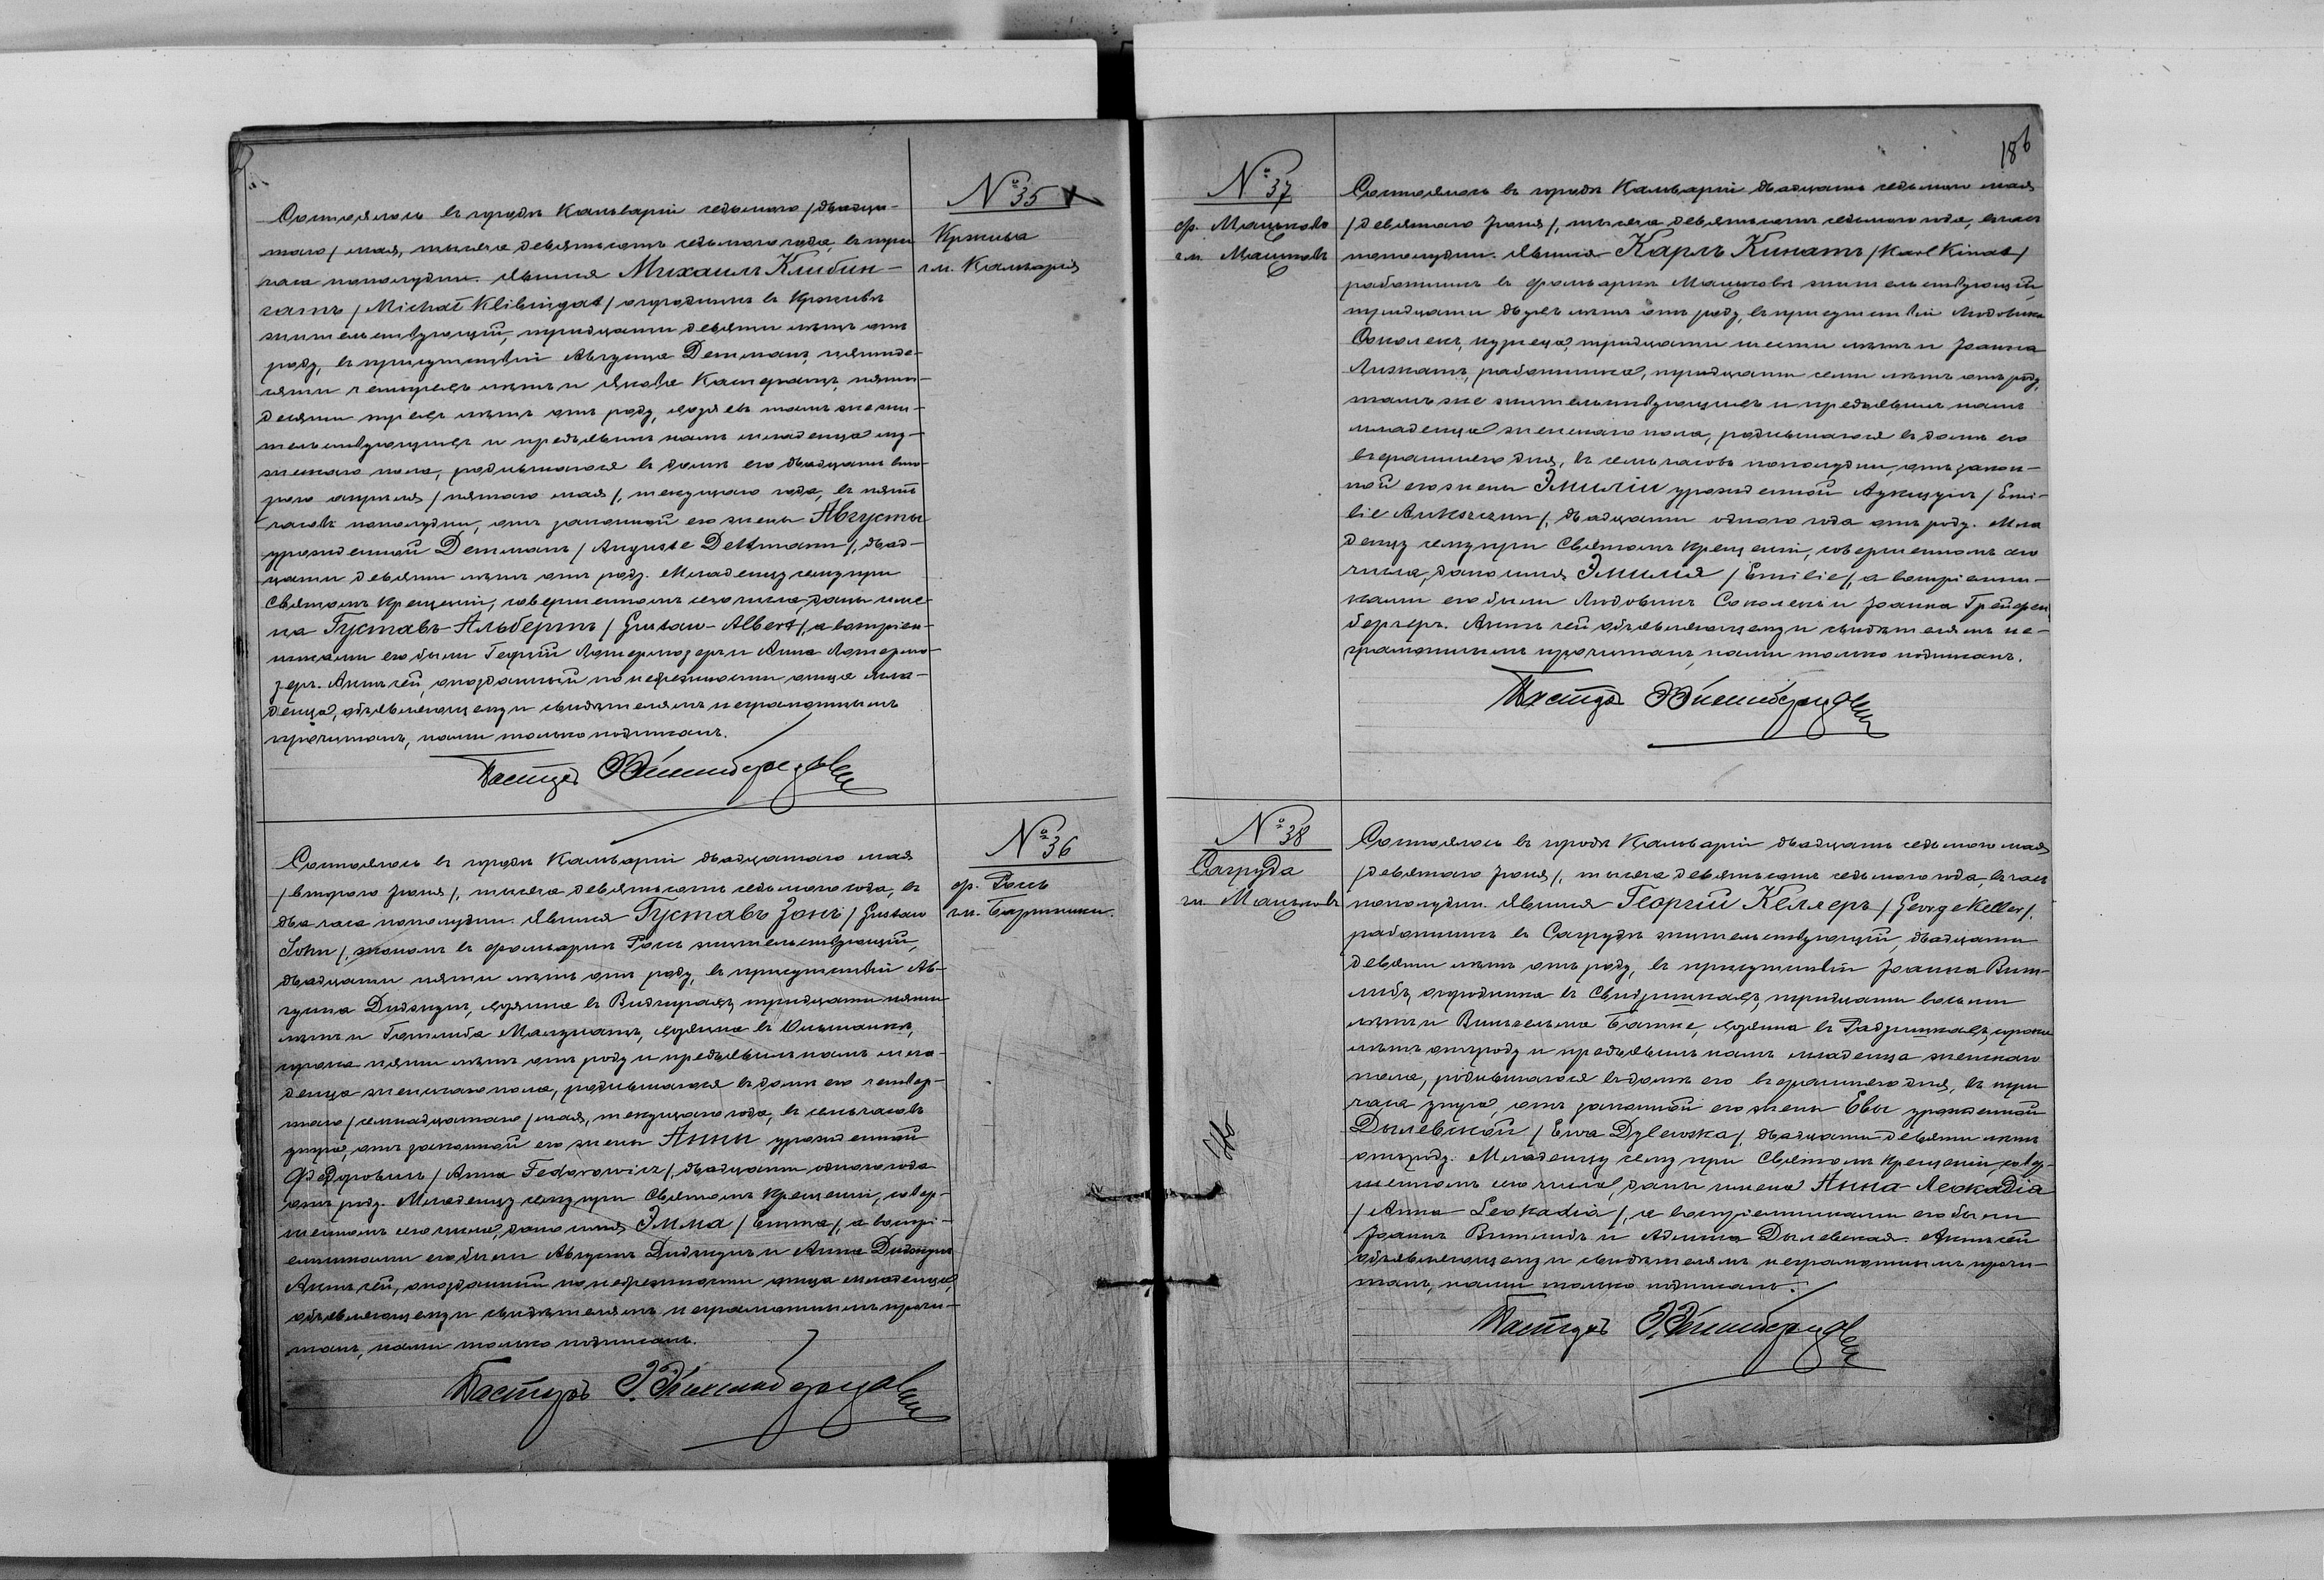 № 35
Кржива
гм. Кальварія
Состоялось въ городѣ Кальваріи седьмого /двадца-
таго/ мая, тысяча девятьсотъ седьмого года, въ три
часа пополудни. Явился Михаилъ Клибин-
гатъ /Michał Klibingat/ огородникъ въ Крживѣ
жительствующій, тридцати девяти лѣтъ отъ
роду, въ присутствіи Августа Детманъ, пятиде-
сяти четырехъ лѣтъ и Якова пяти-
десяти трехъ лѣтъ отъ роду, хозяевъ тамъ же жи-
тельствующихъ и предъявилъ намъ младенца му-
жескаго пола, родившагося въ домѣ его двадцать вто-
рого апрѣля /пятаго мая/, текущаго года, въ пять
часовъ пополудни, отъ законной его жены Августы
урожденной Детманъ /Auguste Dettmann/, двад-
цати девяти лѣтъ отъ роду. Младенцу сему при
Святомъ Крещеніи, совершенномъ сего числа, даны име-
на Густавъ-Альбертъ /Gustaw-Albert/, а воспріем-
никами его были Георгій и Анна
Актъ сей, опозданный по небрежности отца мла-
денца, объявляющему и свидѣтелямъ неграмотнымъ
прочитанъ, нами только подписанъ.
Пасторъ
№ 36
ф. Рось
гм. Бартники.
Состоялось въ городѣ Кальваріи двадцатаго мая
/второго Іюня/, тысяча девятьсотъ седьмого года, въ
два часа пополудни. Явился Густавъ Зонъ /Gustaw
Sohn/, экономъ въ фольваркѣ Рось жительствующій,
двадцати пяти лѣтъ отъ роду, въ присутствіи Ав-
густа Диджунъ, хозяина въ тридцати пяти
лѣтъ и Готлиба хозяина въ
сорока пяти лѣтъ отъ роду и предъявилъ намъ мла-
денца женскаго пола, родившагося въ домѣ его четвер-
таго /семнадцатаго/ мая, текущаго года, въ семь часовъ
утра, отъ законной его жены Анны урожденной
Федоровичъ /Anna Fedorowicz/, двадцати одного года
отъ роду. Младенцу сему при Святомъ Крещеніи, совер-
шенномъ сего числа, дано имя Эмма /Emma/, а воспрі-
емниками его были Августъ Диджунъ и Анна Диджунъ
Актъ сей, опозданный по небрежности отца младенца,
объявляющему и свидѣтелямъ неграмотнымъ прочи-
танъ, нами только подписанъ.
Пасторъ
186
№ 37
ф. Мацково
гм. Мацковъ
Состоялось въ городѣ Кальваріи двадцать седьмого мая
/девятаго Іюня/, тысяча девятьсотъ седьмого года, въ часъ
пополудни. Явился Карлъ Кинатъ /Karl Kinat/
работникъ въ фольваркѣ Мацковѣ жительствующій,
тридцати двухъ лѣтъ отъ роду, въ присутствіи Людовика
кузнеца, тридцати шести лѣтъ и Іоанна
работника, тридцати семи лѣтъ отъ роду,
тамъ же жительствующихъ и предъявилъ намъ
младенца женскаго пола, родившагося въ домѣ его
вчерашняго дня, въ семь часовъ пополудни, отъ закон-
ной его жены Эмиліи урожденной Аукщунъ /Emi-
lie Aukszun/, двадцати одного года отъ роду. Мла
денцу сему при Святомъ Крещеніи, совершенномъ сего
числа, дано имя Эмилія /Emilie/, а воспріемни-
ками его были Людовикъ и Іоанна Грейфен
бергеръ. Актъ сей объявляющему и свидѣтелямъ не-
грамотнымъ прочитанъ, нами только подписанъ.
Пасторъ
№ 38
Сагруда
гм. Мацковъ
Состоялось въ городѣ Кальваріи двадцать седьмого мая
/девятаго Іюня/, тысяча девятьсотъ седьмого года, въ часъ
пополудни. Явился Георгій Келлеръ /George Keller/,
работникъ въ Сагрудѣ жительствующій, двадцати
девяти лѣтъ отъ роду, въ присутствіи Іоанна Вит-
либъ, огородника въ тридцати восьми
лѣтъ и Вильгельма хозяина въ сорока
лѣтъ отъ роду и предъявилъ намъ младенца женскаго
пола, родившагося въ домѣ его вчерашняго дня, въ три
часа утра, отъ законной его жены Евы урожденной
Дылевской /Ewa Dylewska/, двадцати девяти лѣтъ
отъ роду. Младенцу сему при Святомъ Крещеніи, совер-
шенномъ сего числа, даны имена Анна-Леокадія
/Anna-Leokadia/, а воспріемниками его были
Іоаннъ Витлибъ и Адлина Дылевская. Актъ сей
объявляющему и свидѣтелямъ неграмотнымъ прочи-
танъ, нами только подписанъ.
Пасторъ